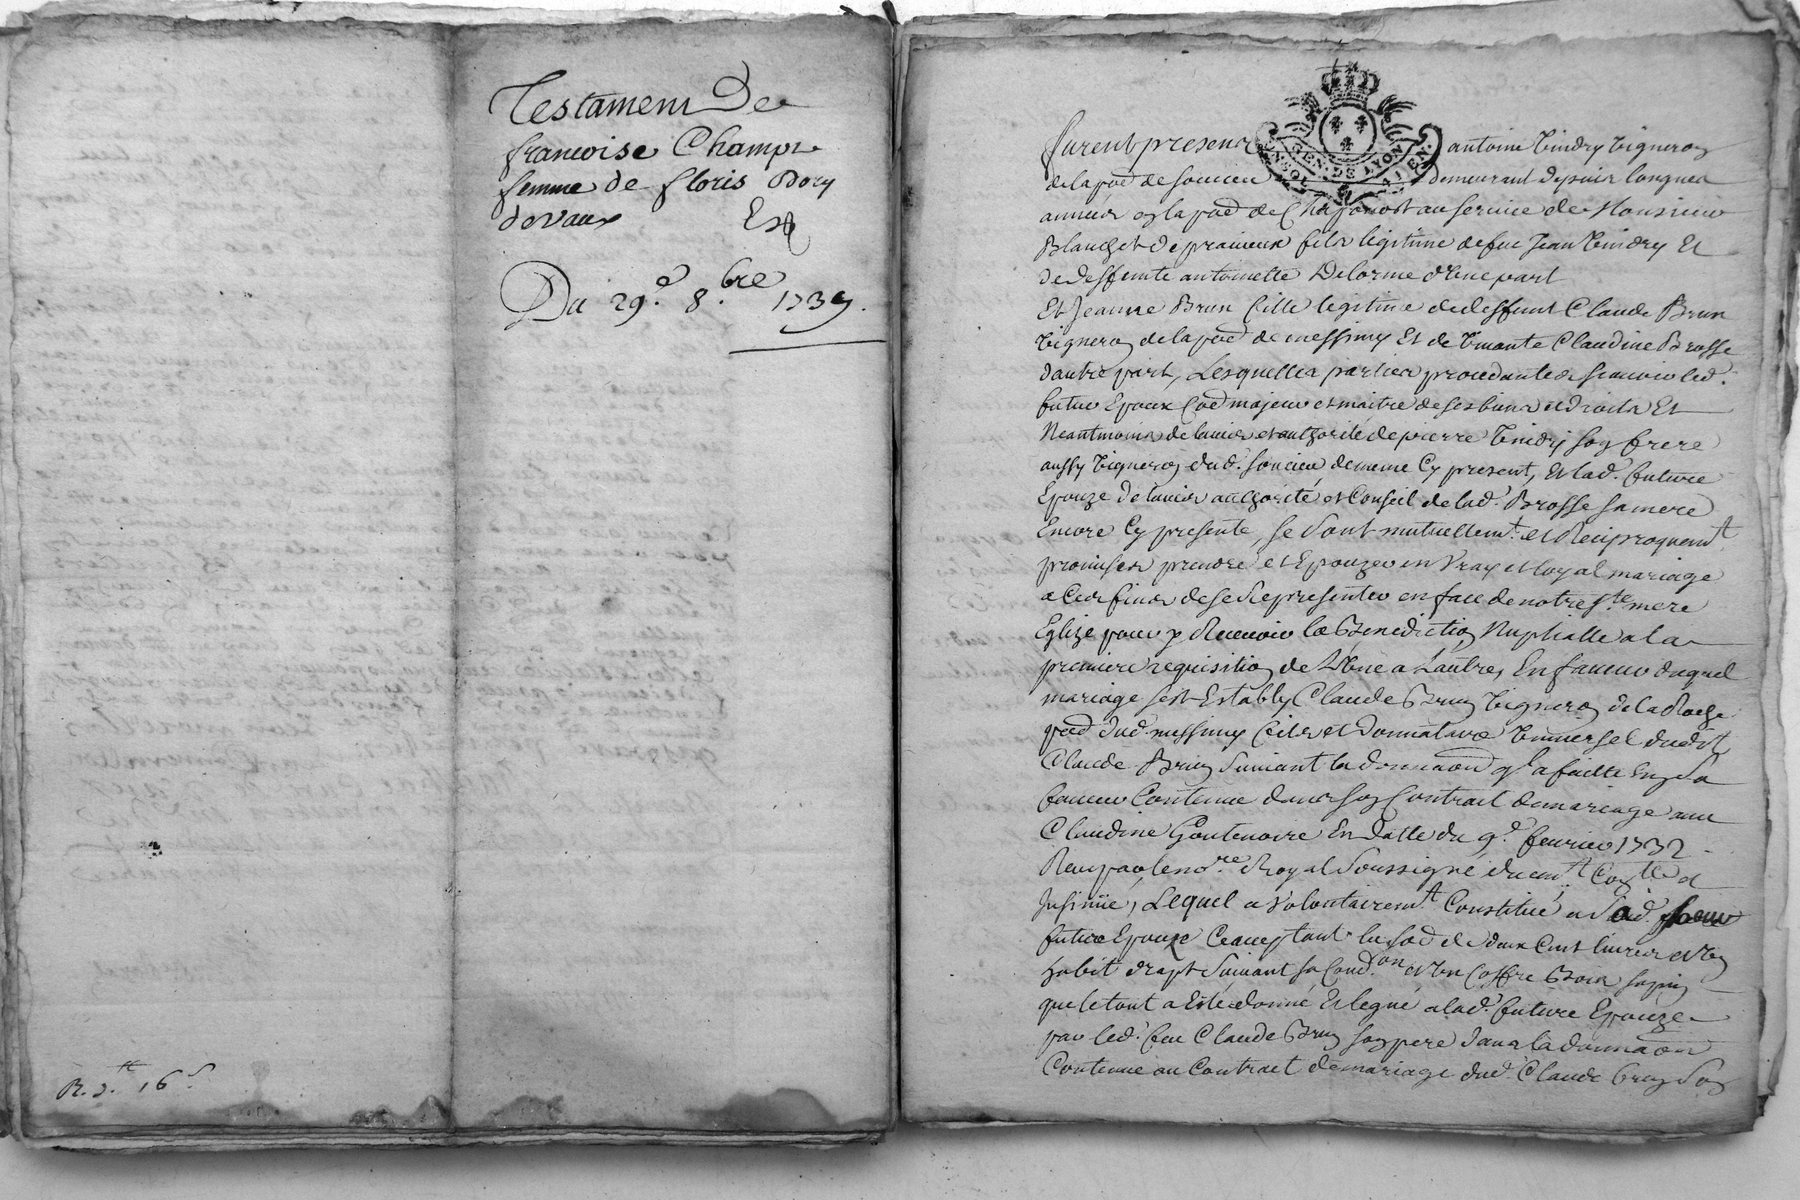 Testament De
francoise Champt
femme de floris Bory
devaux
Du 29e 8.bre 1739.
R. 3.tt 16 s
furent presens antoine Vindry Vigneron
de la pød de soucieu demeurant depuis longues
années en la pød de Chaponost au service de Monsieur
Blanchet de pravieux fils legitime de feu Jean Vindry Et
de deffunte antoinette Delorme d'une part
Et Jeanne Brun fille legitime de deffunt Claude Brun
Vigneron de la pød de messimy Et de Vivante Claudine Brosse
d'autre part, Lesquelles parties procedantes scavoir led.
futur Epoux Coe majeur et maitre de ses biens et droits Et
Neantmoins de lavis et authorité de pierre Vindry son frere
aussy Vigneron dud. soucieu de meme Cy present, et lad. future
Epouze de lavis authorité et Conseil de lad. Brosse sa mere
Encore Cy presente, se sont mutuellemt. et Reciproquemt.
promises prendre et Epouzer en Vray et loyal mariage
a Ces fins de se Representer en face de notre ste. mere
Eglize pour y Recevoir la Benediction Nuptialle a la
premiere requisition de L'une a L'autre, En faveur duquel
mariage s'est Estably Claude Brun Vigneron de la Roche
pød dud. messimy fils et Donnataire Vniversel dudt.
Claude Brun Suivant la donnaon ql. a faitte En Sa
faveur Contenue dans son Contrait de mariage avec
Claudine Goutenoire En Datte du 9.e fevrier 1732
Receu par le no.re Royal Soussigné duemt. Conllé et
Insinüé, Lequel a Volontairemt. Constitué a Lad.
future Epouze Cacceptant la sød de deux Cent livres et Vn
habit drapt Suivant sa Cond.on et Vn Coffre Bois sapin
que le tout a Esté donné Et legué a lad. future Epouze
par led. feu Claude Brun son pere dans la donnaon
Contenue au Contract de mariage dud. Claude brun Son